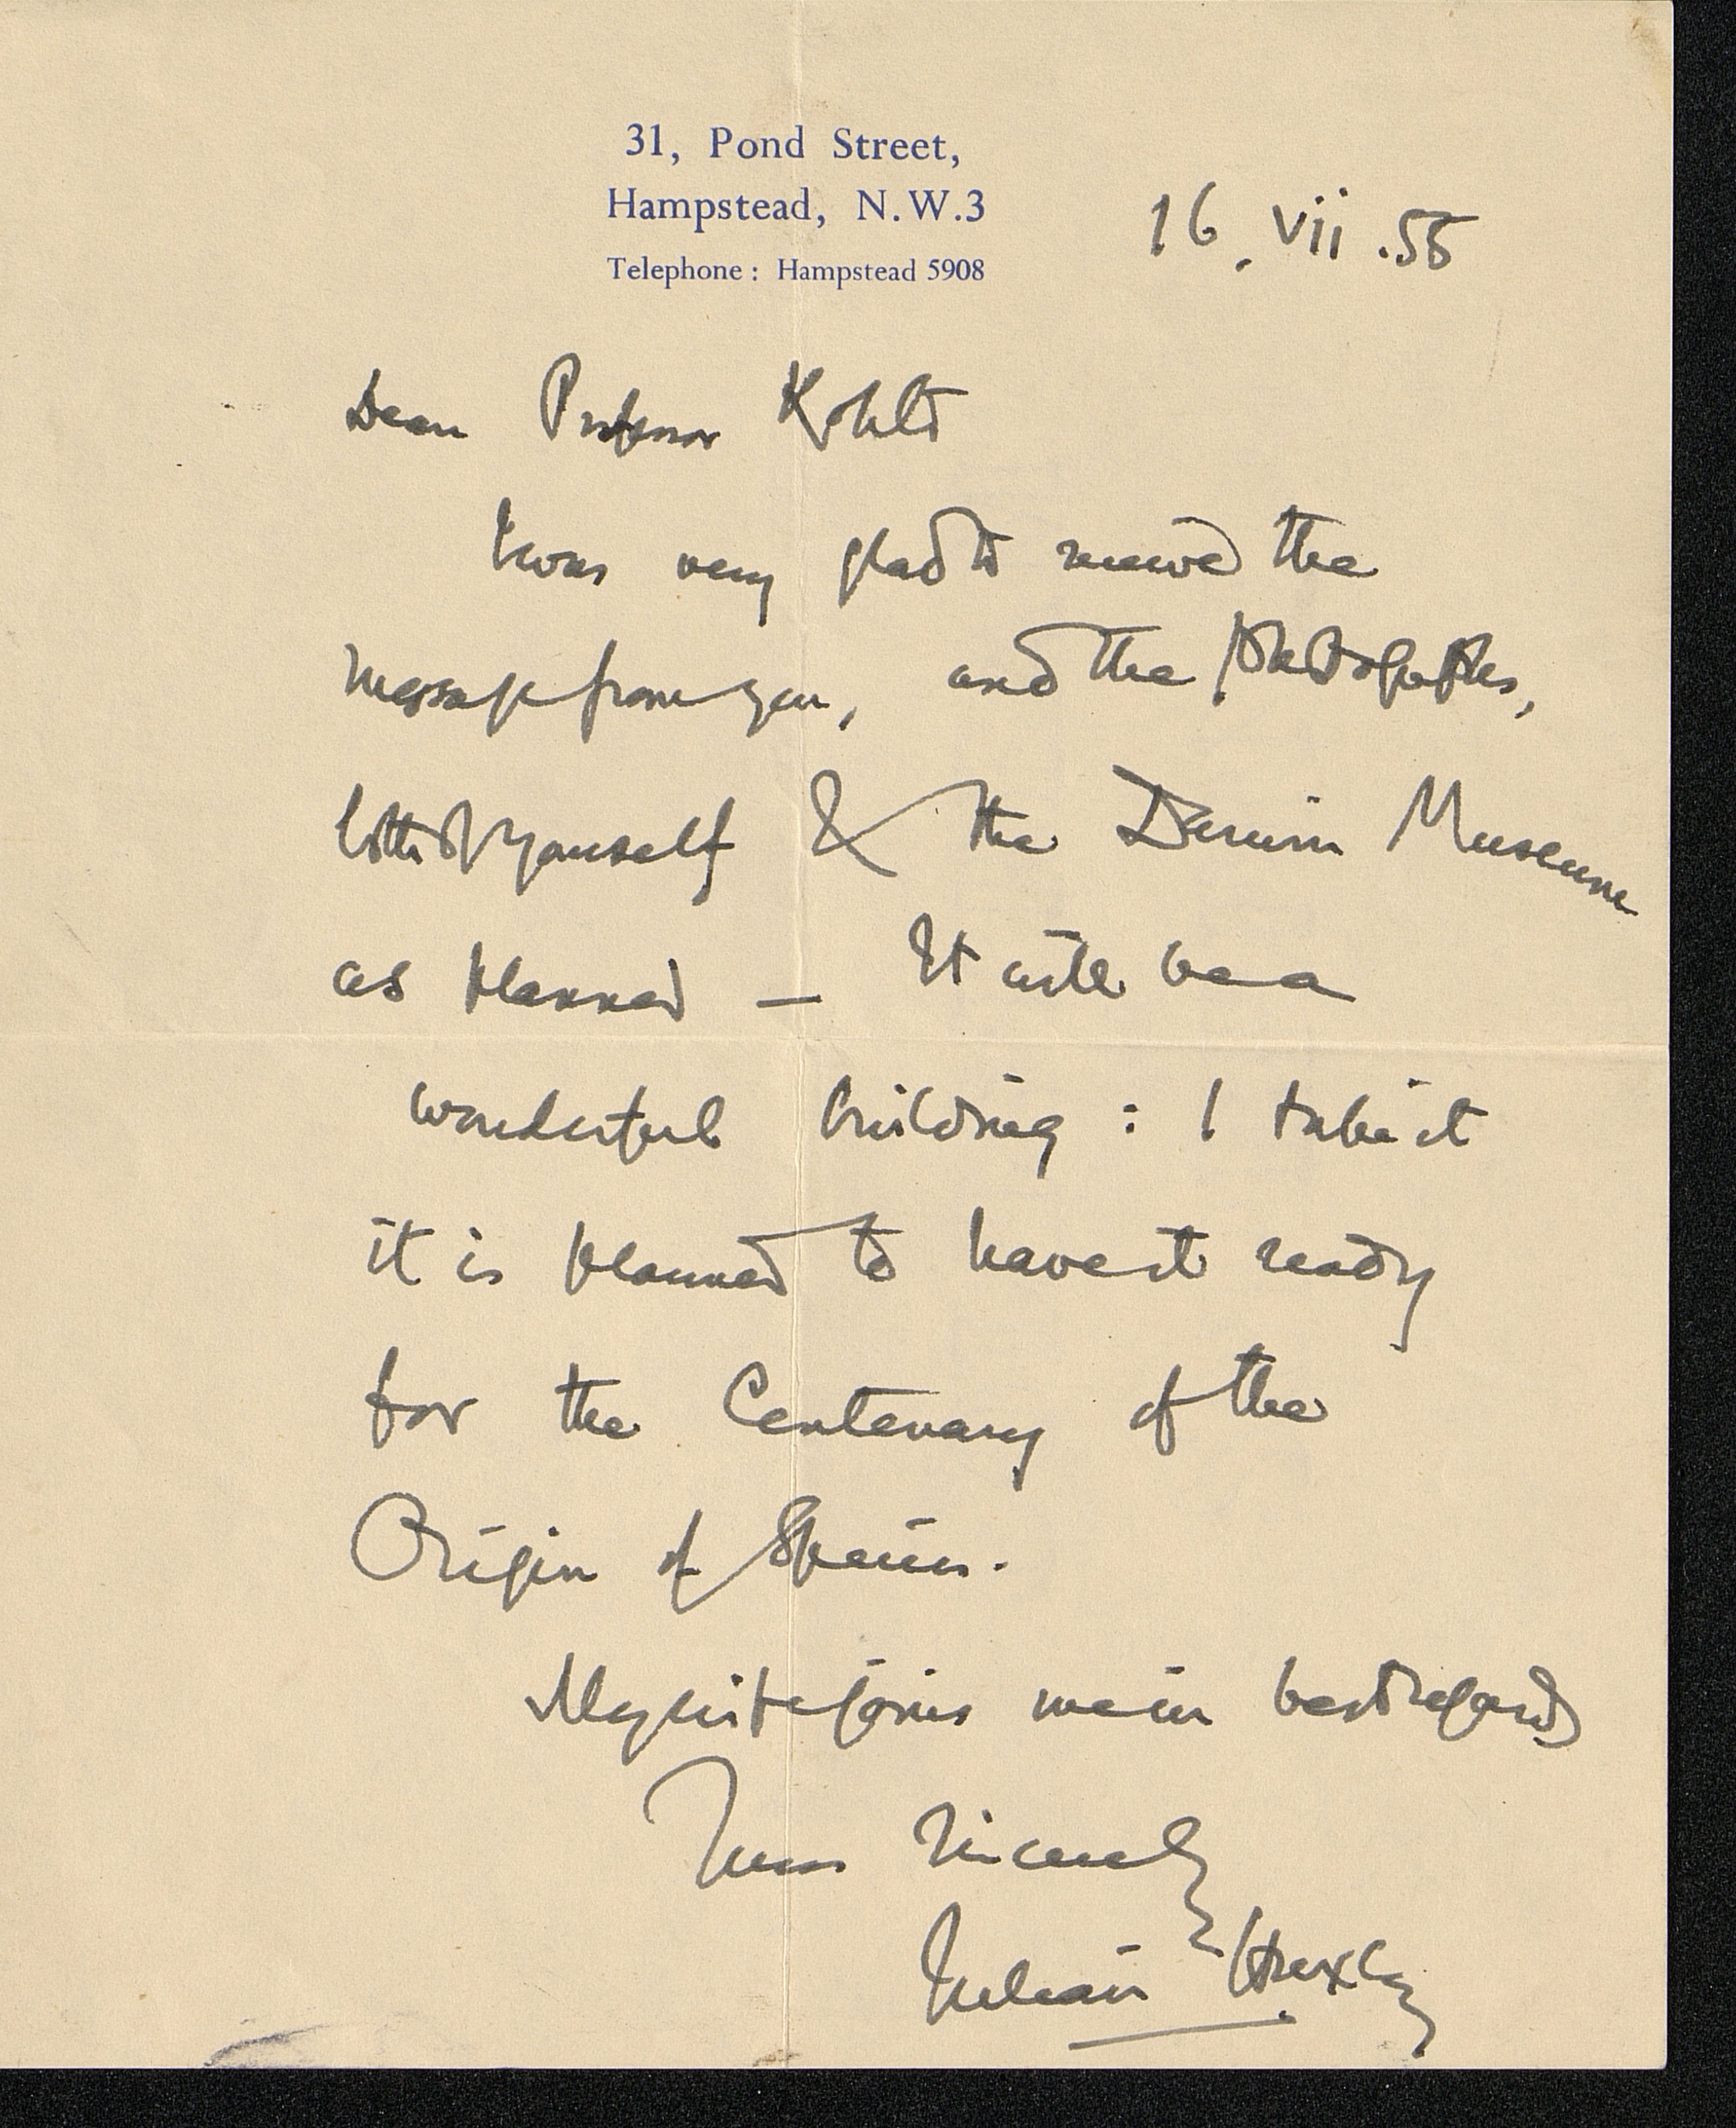 31, Pond Street,
Hampstead, N.W.3
Telephone : Hampstead 5908
16. vii .55
Dear Professor Kohts
I was very glad to receive the
message from you, and the photographs,
both of yourself & the Darwin Museum
as planned — It will be a
wonderful building : I take it
it is planned to have it ready
for the Centenary of the
Origin of Species.
My wife joins me in best regards
Yours sincerely
Julian Huxley